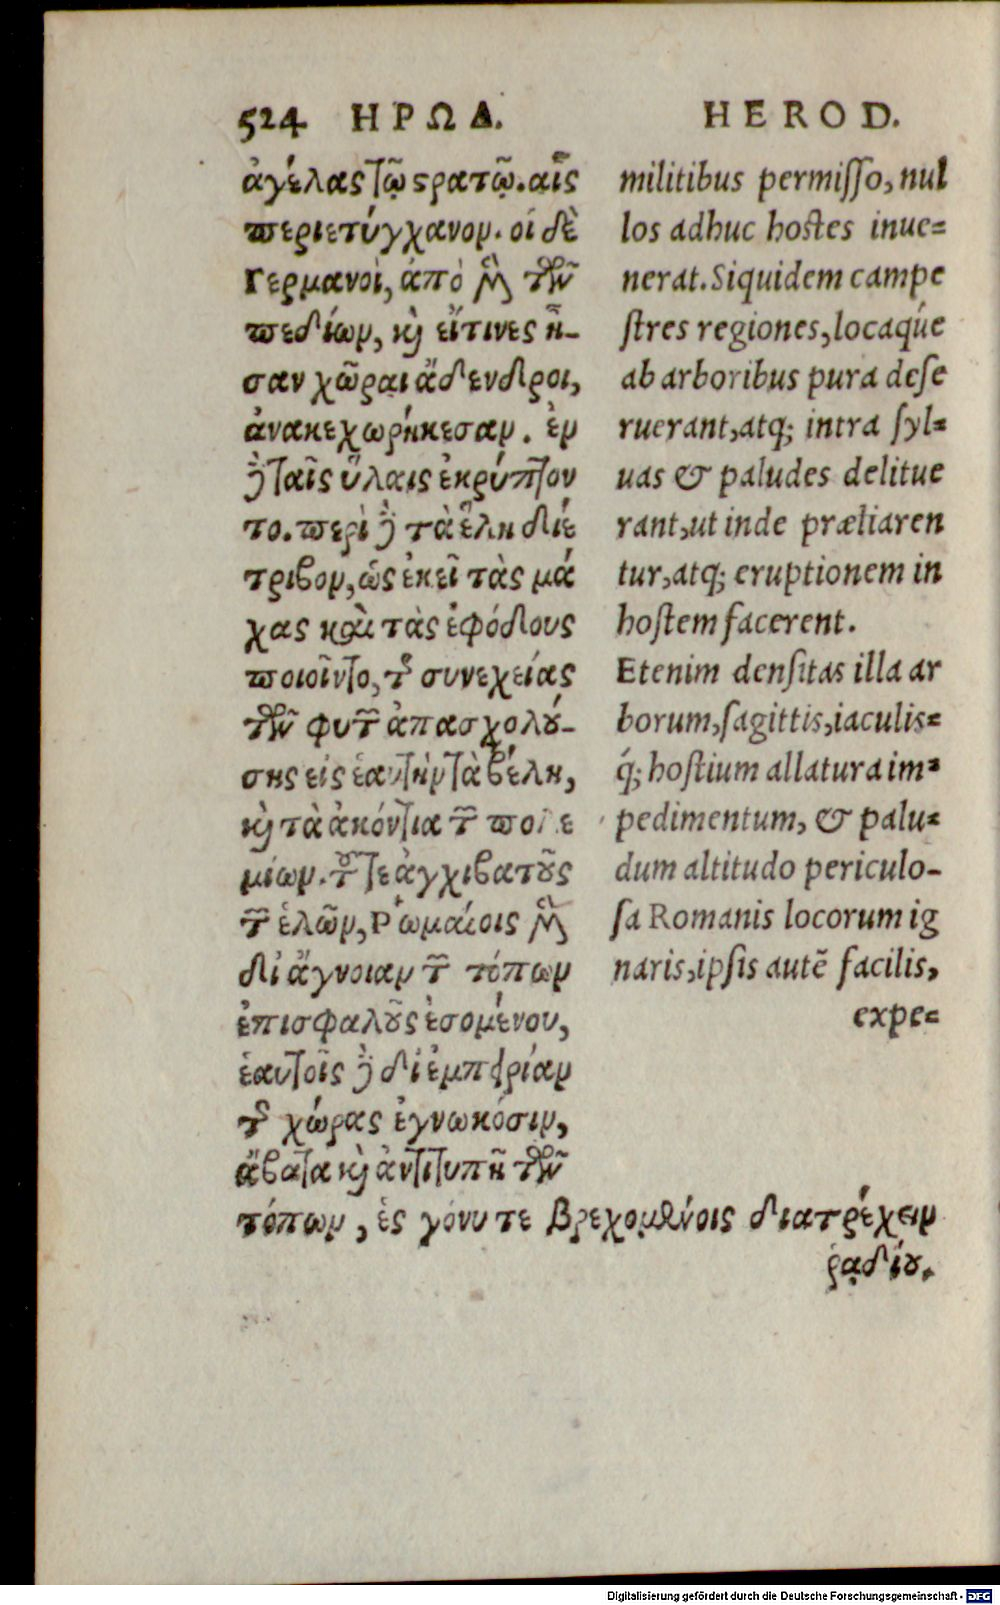 524 ΗΡΩΔ.
ἀγέλας τῷ στρατῷ. αἷς
περιετύγχανον. οἱ δὲ
Γερμανοὶ, ἀπὸ μὲν τῶν
πεδίων, καὶ εἴτινες ἦ-
σαν χῶραι ἄδενδροι,
ἀνακεχωρήκεσαν. ἐν
δὲ ταῖς ὕλαις ἐκρύπτον
το. περὶ δὲ τὰ ἕλη διέ
τριβον, ὡς ἐκεῖ τὰς μά
χας καὶ τὰς ἐφόδους
ποιοῖντο, τῆς συνεχείας
τῶν φυτῶν ἀπασχολού-
σης εἰς ἑαυτὴν τὰ βέλη,
καὶ τὰ ἀκόντια τῶν πολε
μίων. τοῦ τε ἀγχιβατοῦς
τῶν ἑλῶν, Ῥωμαίοις μὲν
δι' ἄγνοιαν τῶν τόπων
ἐπισφαλοῦς ἐσομένου,
ἑαυτοῖς δὲ δι' ἐμπειρίαν
τῆς χώρας ἐγνωκόσιν,
ἄβατα καὶ ἀντιτυπῆ τῶν
τόπων, ἐς γόνυ τε βρεχομένοις διατρέχειν
ῥᾳδίου.
HEROD.
militibus permisso, nul
los adhuc hostes inue=
nerat. Siquidem campe
stres regiones, locaqúe
ab arboribus pura dese
ruerant, atq; intra syl=
uas & paludes delitue
rant, ut inde præliaren
tur, atq; eruptionem in
hostem facerent.
Etenim densitas illa ar
borum, sagittis, iaculis=
q́; hostium allatura im=
pedimentum, & palu=
dum altitudo periculo-
sa Romanis locorum ig
naris, ipsis autē facilis,
expe=
Digitalisierung gefördert durch die Deutsche Forschungsgemeinschaft - DFG